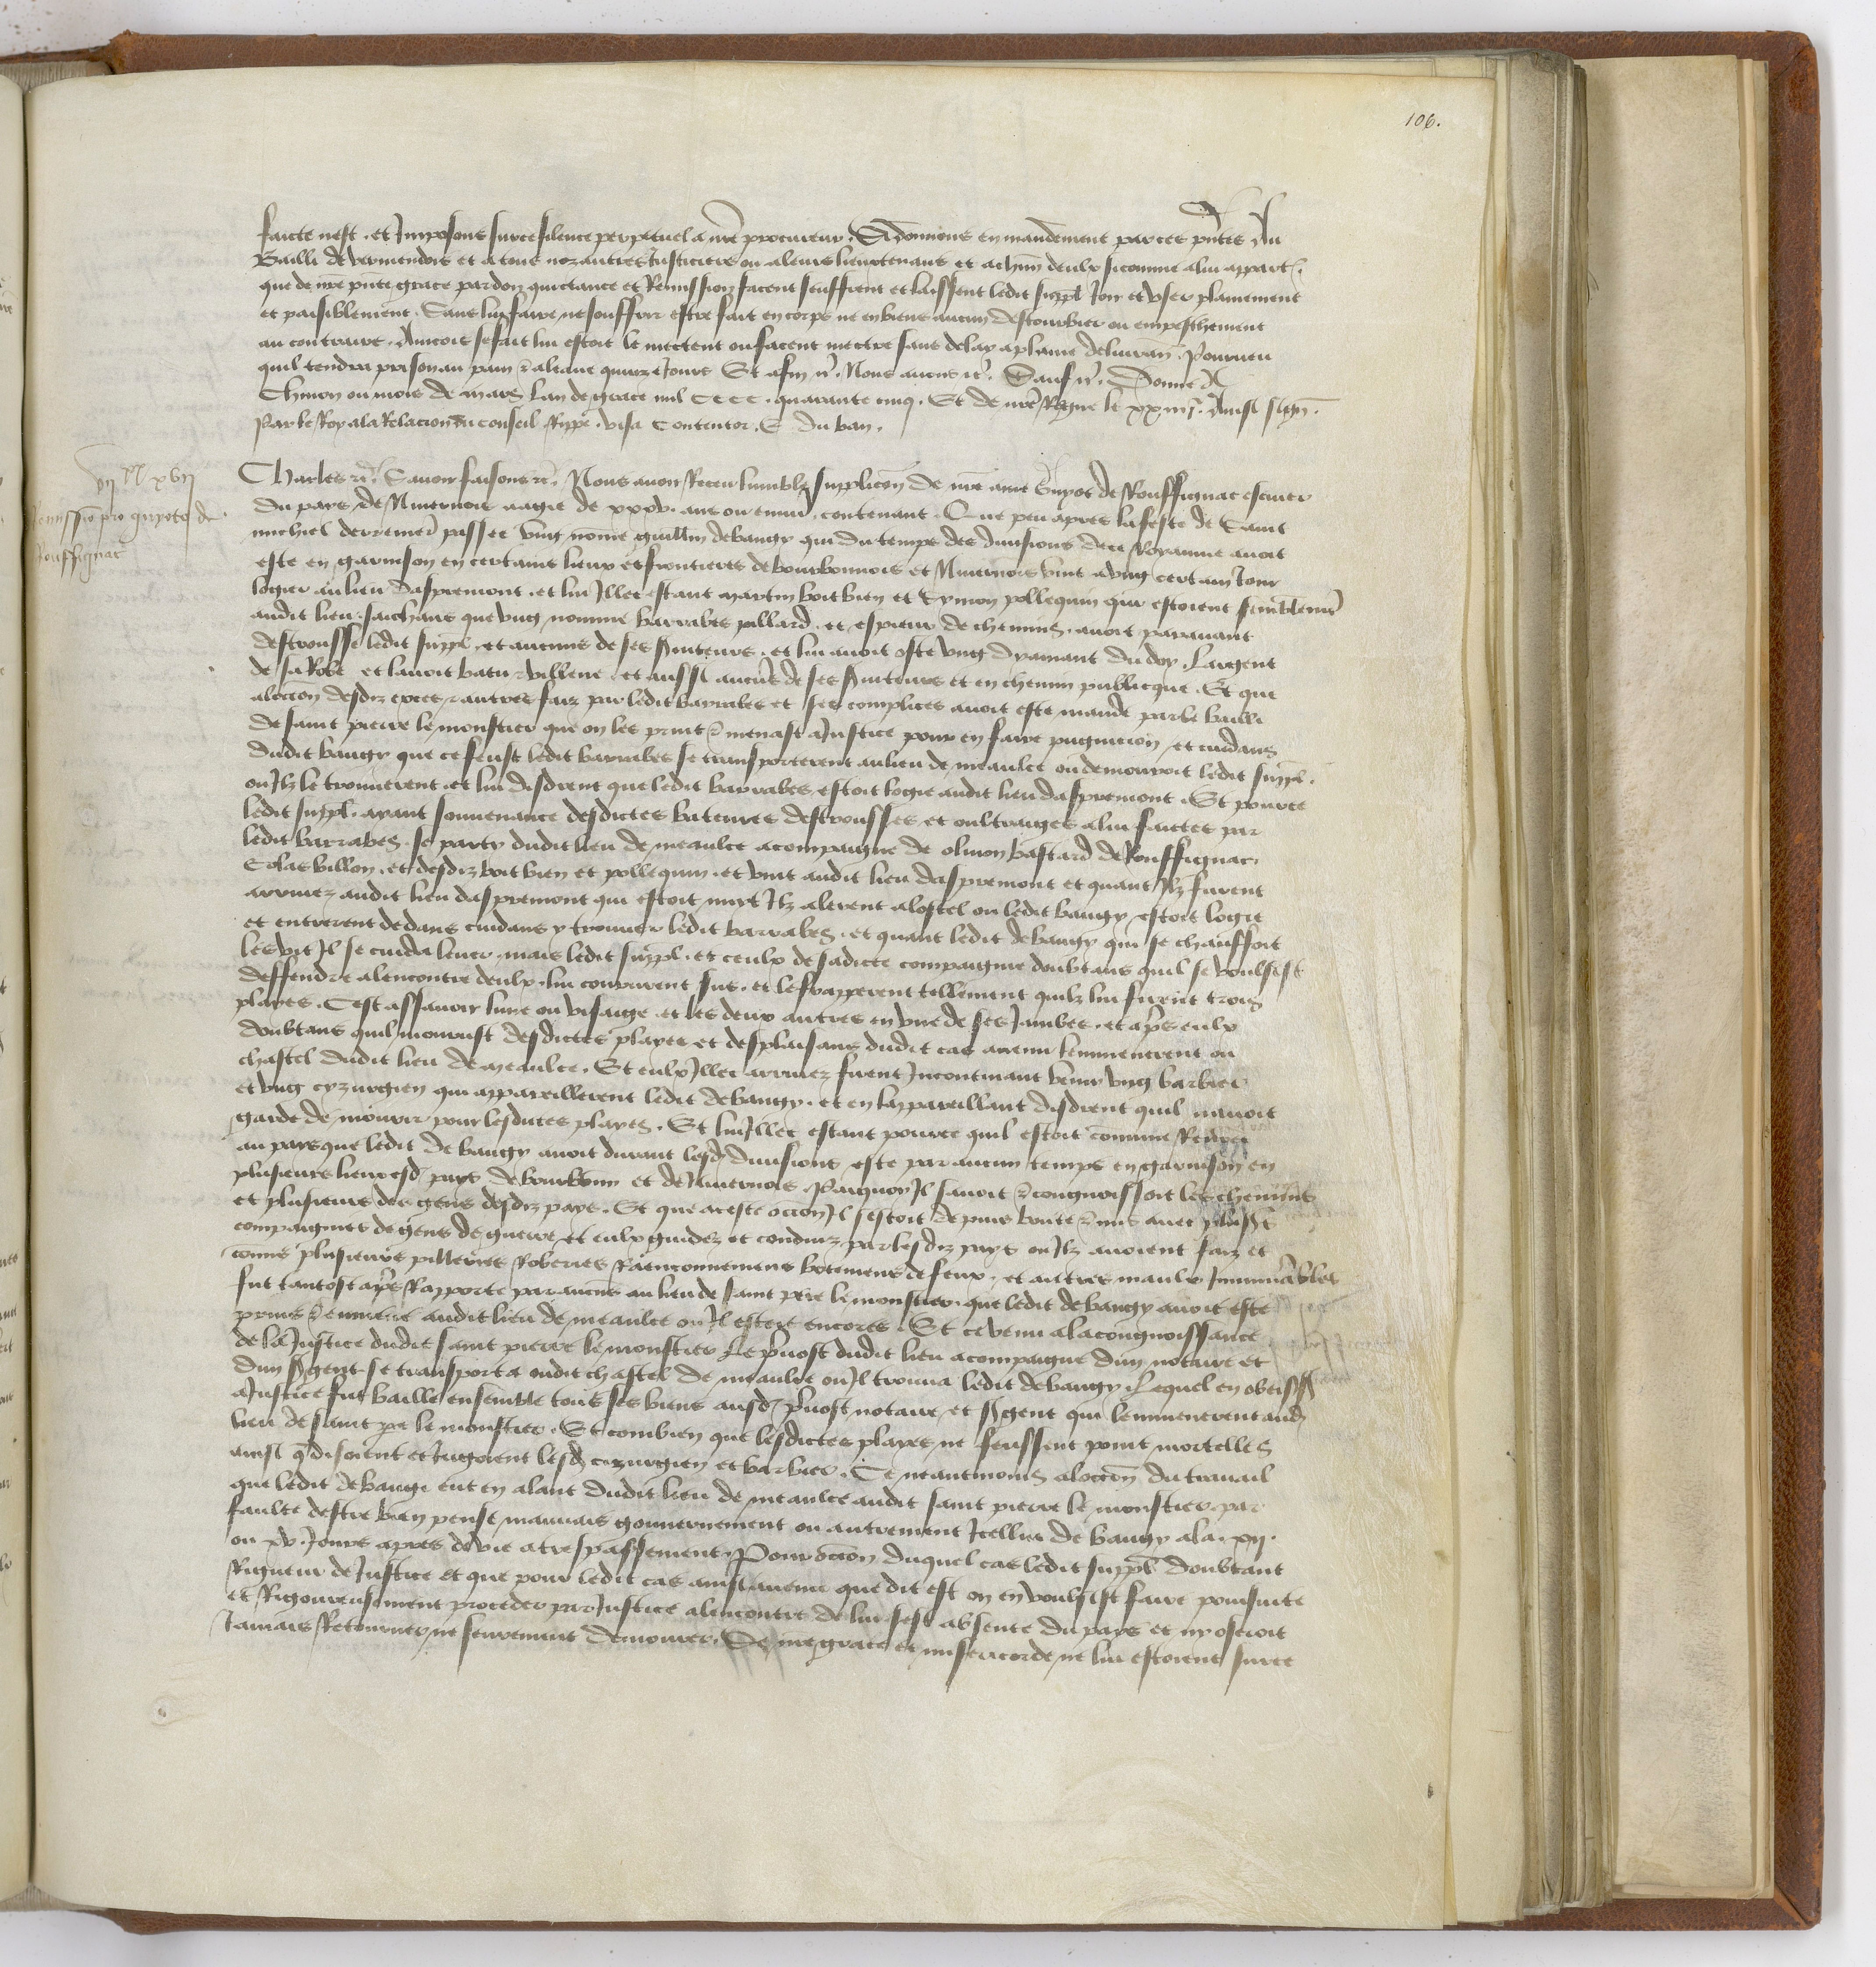 106.
faicte nest. et Imposons sur ce silence perpetuel a nre procureur. Si donnons en mandement par ces pntes Au
Bailli de vermendois et a tous noz autres Justiciers ou a leurs lieuxtenans et a chun deulx si comme a lui appart.
que de nre pnte grace pardon quictance et Remission facent seuffrent et laissent ledit suppl Joir et vser plainement
et paisiblement. Sans lui faire ne souffrir estre fait en corps ne en biens aucun destourbier ou empeschement
au contraire. Aincois se fait lui estoit le mectent ou facent mectre sans delay a plaine deliuran. Pourueu
quil tendra prison au pain & a leaue quinze Jours Et afin &c. Nous auons &c. Sauf &c. Donne A
Chinon ou mois de mars Lan de grace mil CCCC. quarante cinq. Et de nre Regne le xxiiii. Ainsi sign.
Par le Roy a la Relacion du conseil. visa Contentor. E. du ban.
vii xx xvii
Remissio pro guyoto de
Rouffignac
Charles &c. Sauoir faisons &c. Nous auoir Receu lumble supplicon de nre ame Guyot de Rouffignac escuier
du pays de Niuernois aagie de xxxv. ans ou enuir. contenant. Que peu apres la feste de Saint
michiel derrenier passee vng nomme guillin de baugy qui du temps des diuisions de ce Royaume auoit
este en garnison en certains lieux et frontieres de bourbonnois et Niuernois vint a vng certain Jour
logier au lieu daspremont. et lui Illec estant martin boit bien et Symon pollequin qui estoient semblemt
audit lieu. saichans que vng nomme barrabes pillard. et espieur de chemins. auoit parauant
destrousse ledit suppl. et aucuns de ses suiteurs. et lui auoit oste vng dyamant du doy. Largent
de sa Robe. et lauoit batu & villene. et aussi aucuns de ses suiteurs et en chemin publicque. Et que
a loccion desdiz exces & autres faiz par ledit barrabes et ses complices auoit este mande par le bailli
de saint pierre le monstier que on les print & menast a Justice pour en faire pugnicion, et cuidans
dudit baugy que ce feust ledit barrabes se transporterent au lieu de meaulce ou demouroit ledit suppl.
ou Ilz le trouuerent. et lui disdrent que ledit barrabes estoit logie audit lieu daspremont. Et pource
ledit suppl. ayant souuenance desdictes bateures destrousses et oultraiges a lui faictes par
ledit barrabes. se party dudit lieu de meaulce acompaigne de olimon bastard de Rouffignac.
Colas billon. et desdiz boit bien et pollequin. et vint audit lieu daspremont et quant Ilz furent
arriuez audit lieu daspremont qui estoit nuyt Ilz alerent a lostel ou ledit baugy estoit logie
et entrerent dedans cuidans y trouuer ledit barrabes. et quant ledit de baugy qui se chauffoit
les vit Il se cuida leuer. mais ledit suppl. et ceulx de sadicte compaignie doubtans quil se voulsist
deffendre a lencontre deulx. lui coururent sus. et le frapperent tellement quilz lui firent trois
playes. Cest assauoir lune ou visaige. et les deux autres en vne de ses Jambes. et apres eulx
doubtans quil mourust desdictes playes et desplaisans dudit cas auenu lemmenerent ou
chastel dudit lieu de meaulce. Et eulx Illec arriuez firent Incontinant venir vng barbier
et vng cyrurgien qui appareillerent ledit de baugy. et en lappareillant disdrent quil nauoit
garde de mourir pour lesdictes playes. Et lui Illec estant pource quil estoit commune Renomee
au pays que ledit de baugy auoit durant lesd diuisions este par aucun temps en garnison en
plusieurs lieux esd pays de bourbonn et de Niuernois. Parquoy Il sauoit & congnoissoit les chemins
et plusieurs des gens desdiz pays. Et que a ceste occion Il sestoit depuis boute & mis auec plusrs
compaignies de gens de guerre et eulx guidez et conduiz par lesdiz pays ou Ilz auoient faiz et
commis plusieurs pilleries Roberies Raenconnemens botemens de feux. et autres maulx Innumerables
fut tantost apres Rapporte par aucuns au lieu de saint pere le monstier. que ledit de baugy auoit este
prins & emmene audit lieu de meaulce ou Il estoit encores. Et ce venu a la congnoissance
de la Justice dudit saint pierre le monstier Le preuost dudit lieu acompaigne dun notaire et
dun sergent se transporta oudit chastel de meaulce ou Il trouua ledit de baugy. Lequel en obeiss
a Justice fut baille ensemble tous ses biens ausd preuost notaire et sergent qui lemmenerent aud
lieu de saint pre le monstier. Et combien que lesdictes playes ne feussent point mortelles
ainsi q disoient et Jugoient lesd cyrurgien et barbier. Ce neantmoins a loccion du trauail
que ledit de baugi eut en alant dudit lieu de meaulce audit saint pierre le monstier par
faulte destre bien pense, mauuais gouuernement ou autrement Icellui de baugy ala. xii.
ou xv. Jours apres de vie a trespassement. Pour occion duquel cas ledit suppl doubtant
Rigueur de Justice et que pour ledit cas ainsi auenu que dit est on en voulsist faire poursuite
et Rigoureusement proceder par Justice a lencontre de lui sest absente du pays et ny oseroit
Jamais Retourner ne seurement demourer. Se nre grace et misericorde ne lui estoient sur ce